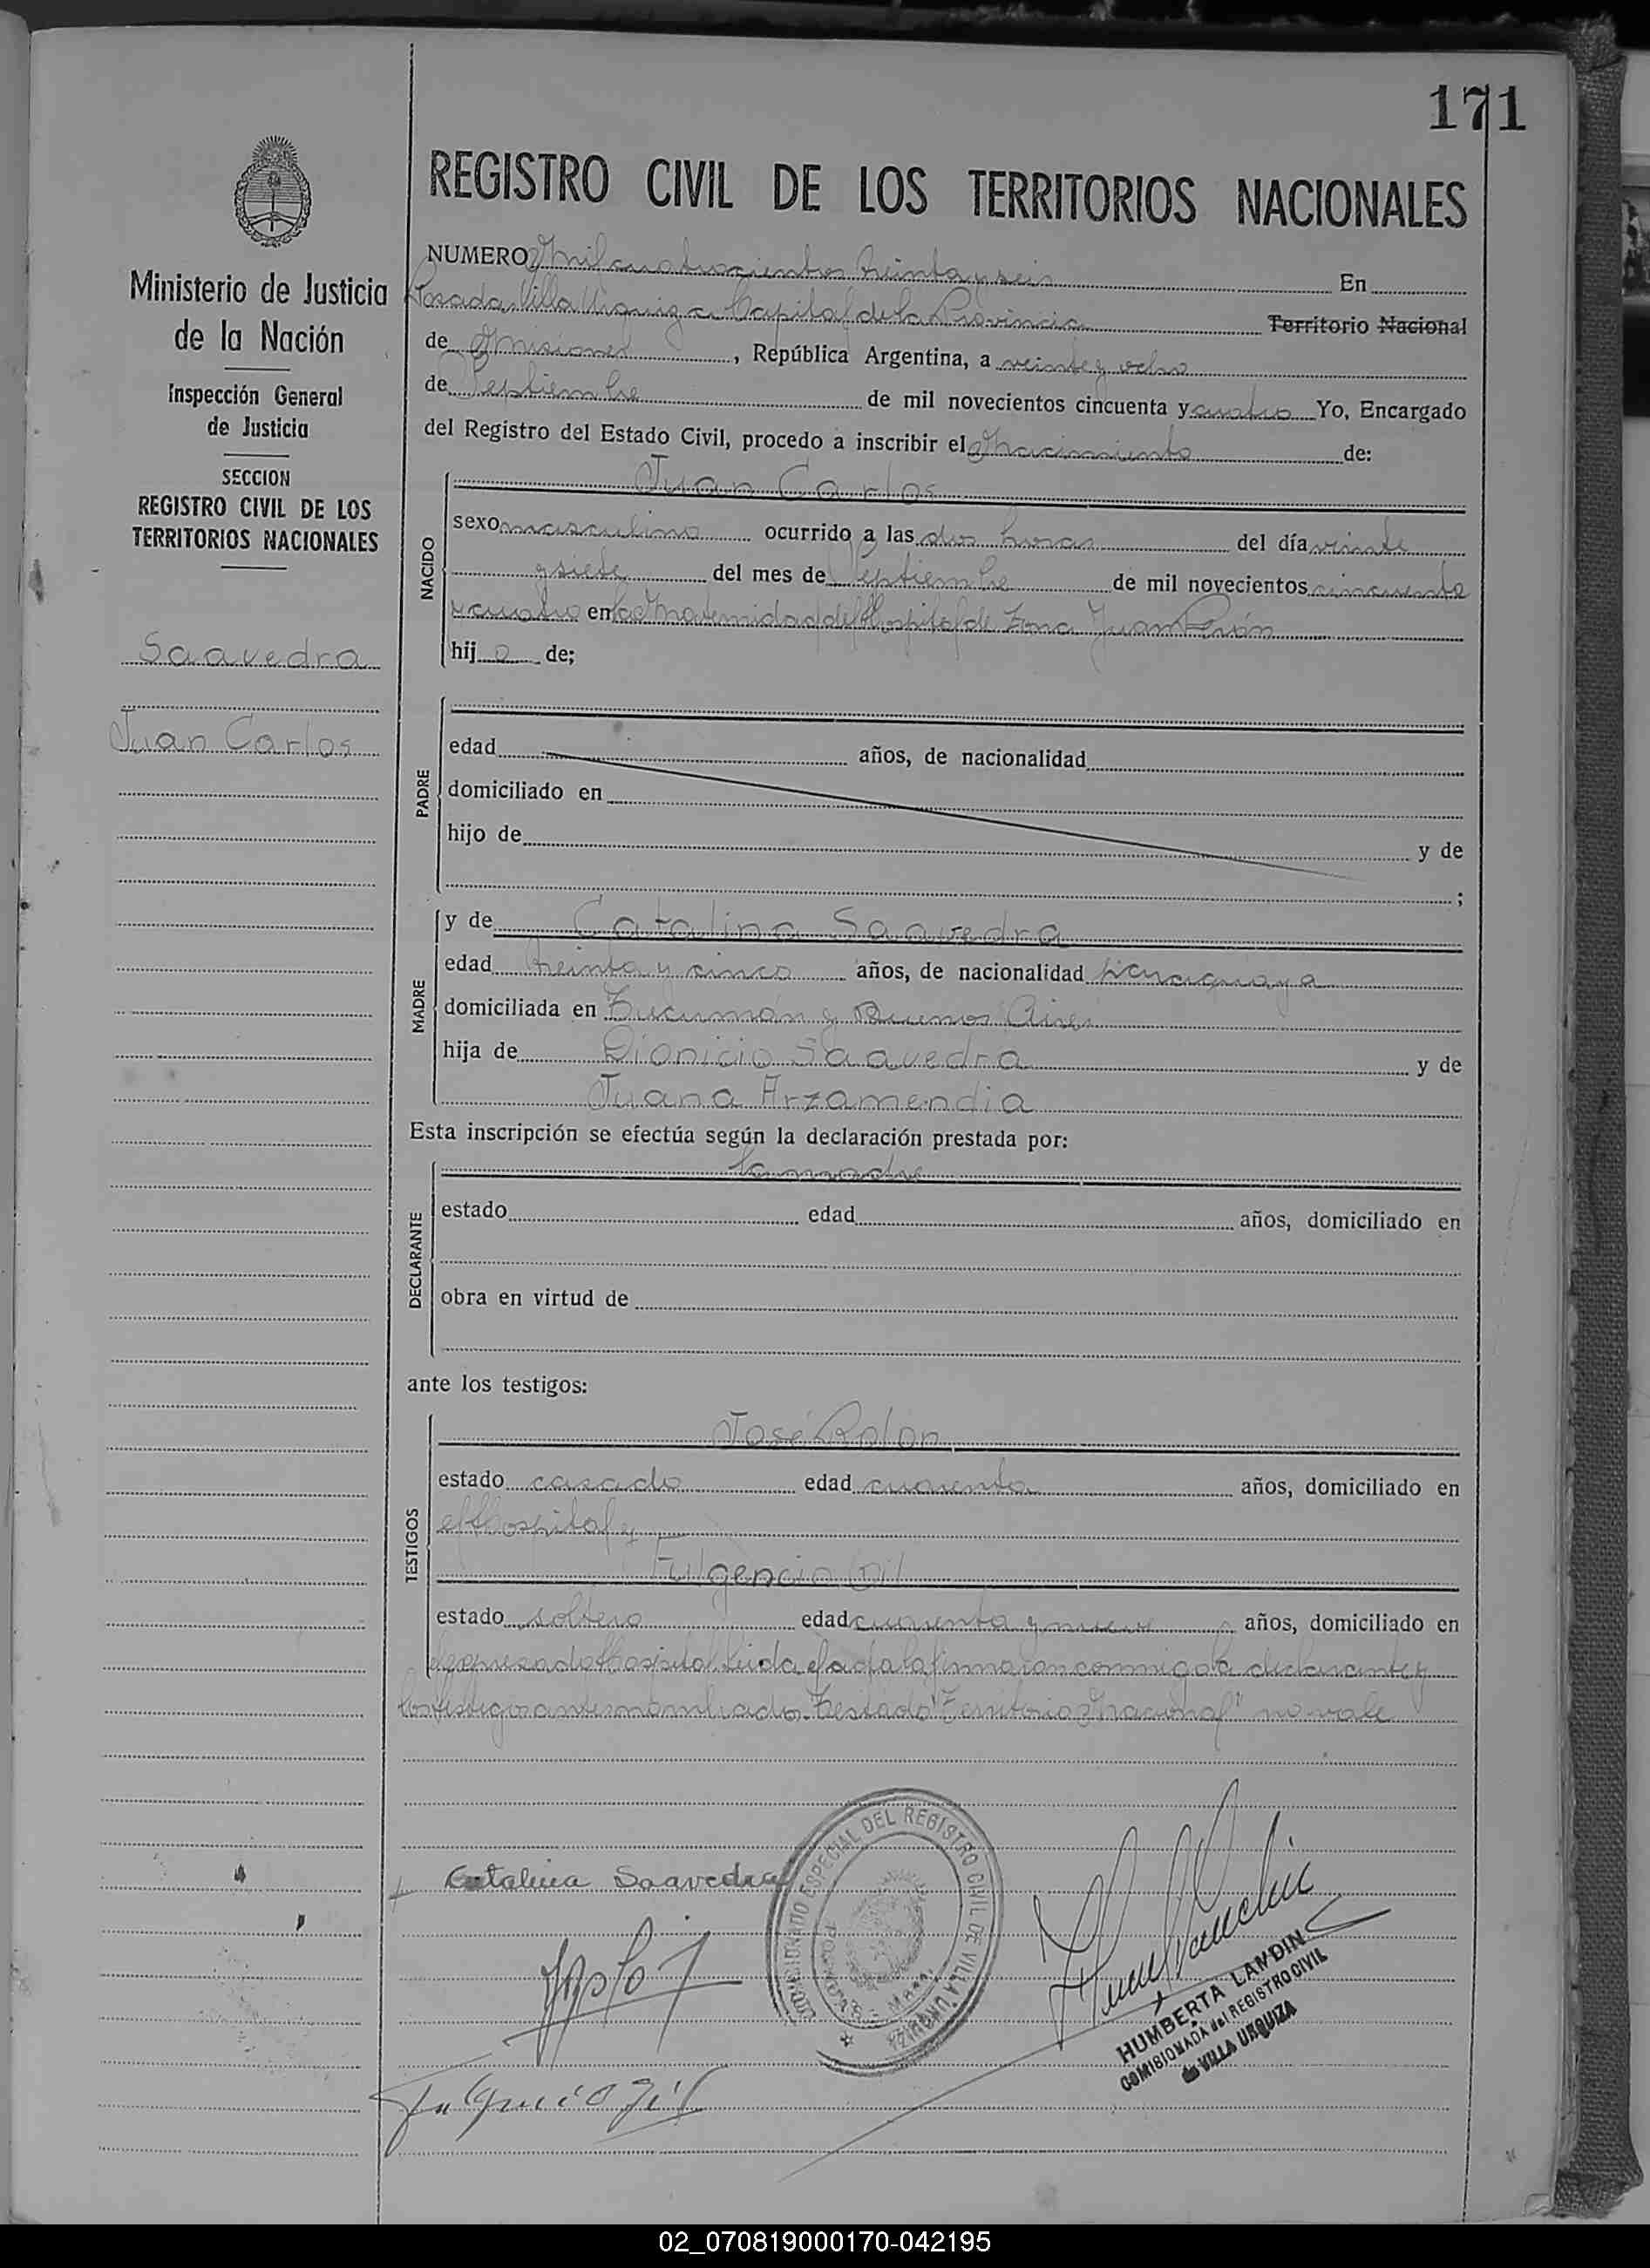 171
REGISTRO CIVIL DE LOS TERRITORIOS NACIONALES
Ministerio de Justicia
de la Nación
Inspección General
de Justicia
SECCION
REGISTRO CIVIL DE LOS
TERRITORIOS NACIONALES
Saavedra
Juan Carlos
NUMERO Mil cuatrocientos treinta y seis En
Posadas, Villa Urquiza Capital de la Provincia Territorio Nacional
de Misiones, República Argentina, a veinte y ocho
de Septiembre de mil novecientos cincuenta y cuatro Yo, Encargado
del Registro del Estado Civil, procedo a inscribir el Nacimiento de:
NACIDO
Juan Carlos
sexo masculino ocurrido a las dos horas del día veinte
y siete del mes de Septiembre de mil novecientos cincuenta
y cuatro en la Maternidad del Hospital de Zona Juan Perón
hijo de;
PADRE
edad años, de nacionalidad
domiciliado en
hijo de y de
;
MADRE
y de Catalina Saavedra
edad treinta y cinco años, de nacionalidad paraguaya
domiciliada en Tucumán y Buenos Aires
hija de Dionicio Saavedra y de
Juana Arzamendia
Esta inscripción se efectúa según la declaración prestada por:
DECLARANTE
la madre
estado edad años, domiciliado en
obra en virtud de
ante los testigos:
TESTIGOS
José Rolon
estado casado edad cuarenta años, domiciliado en
el Hospital y
Fulgencio Gil
estado soltero edad cuarenta y nueve años, domiciliado en
el expresado Hospital. Leida el acta la firmaron conmigo la declarante y
los testigos antes nombrados. Testado "Territorio Nacional" no vale
Catalina Saavedra
Fulgencio Gil
COMISIONADO ESPECIAL DEL REGISTRO CIVIL DE VILLA URQUIZA
HUMBERTA LANDIN
COMISIONADA del REGISTRO CIVIL
de VILLA URQUIZA
02_070819000170-042195